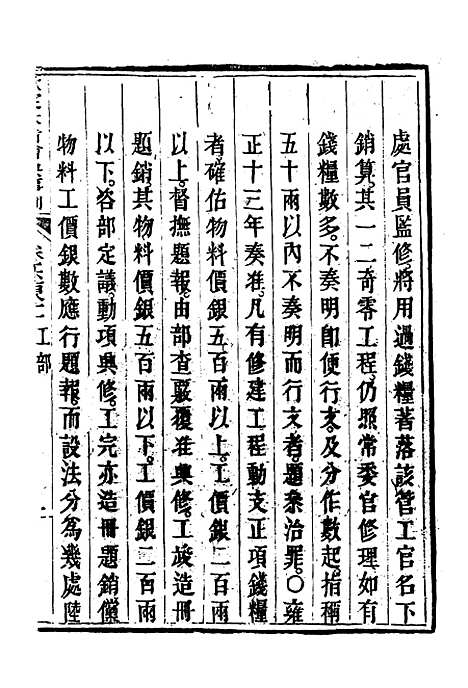 處官員監修將用過錢糧著落該管工官名下
銷算其一二奇零工程仍照常委官修理如有
錢糧數多不奏明卽便行文及分作數起指稱
五十兩以內不奏明而行文者題叅治罪○雍
正十三年奏准凡有修建工程動支正項錢糧
者確估物料價銀五百兩以上工價銀二百兩
以上督撫題報由部查覈覆准興修工竣造冊
題銷其物料價銀五百兩以下工價銀二百兩
以下咨部定議動項興修工完亦造冊題銷儻
物料工價銀數應行題報而設法分爲幾處陸
工部